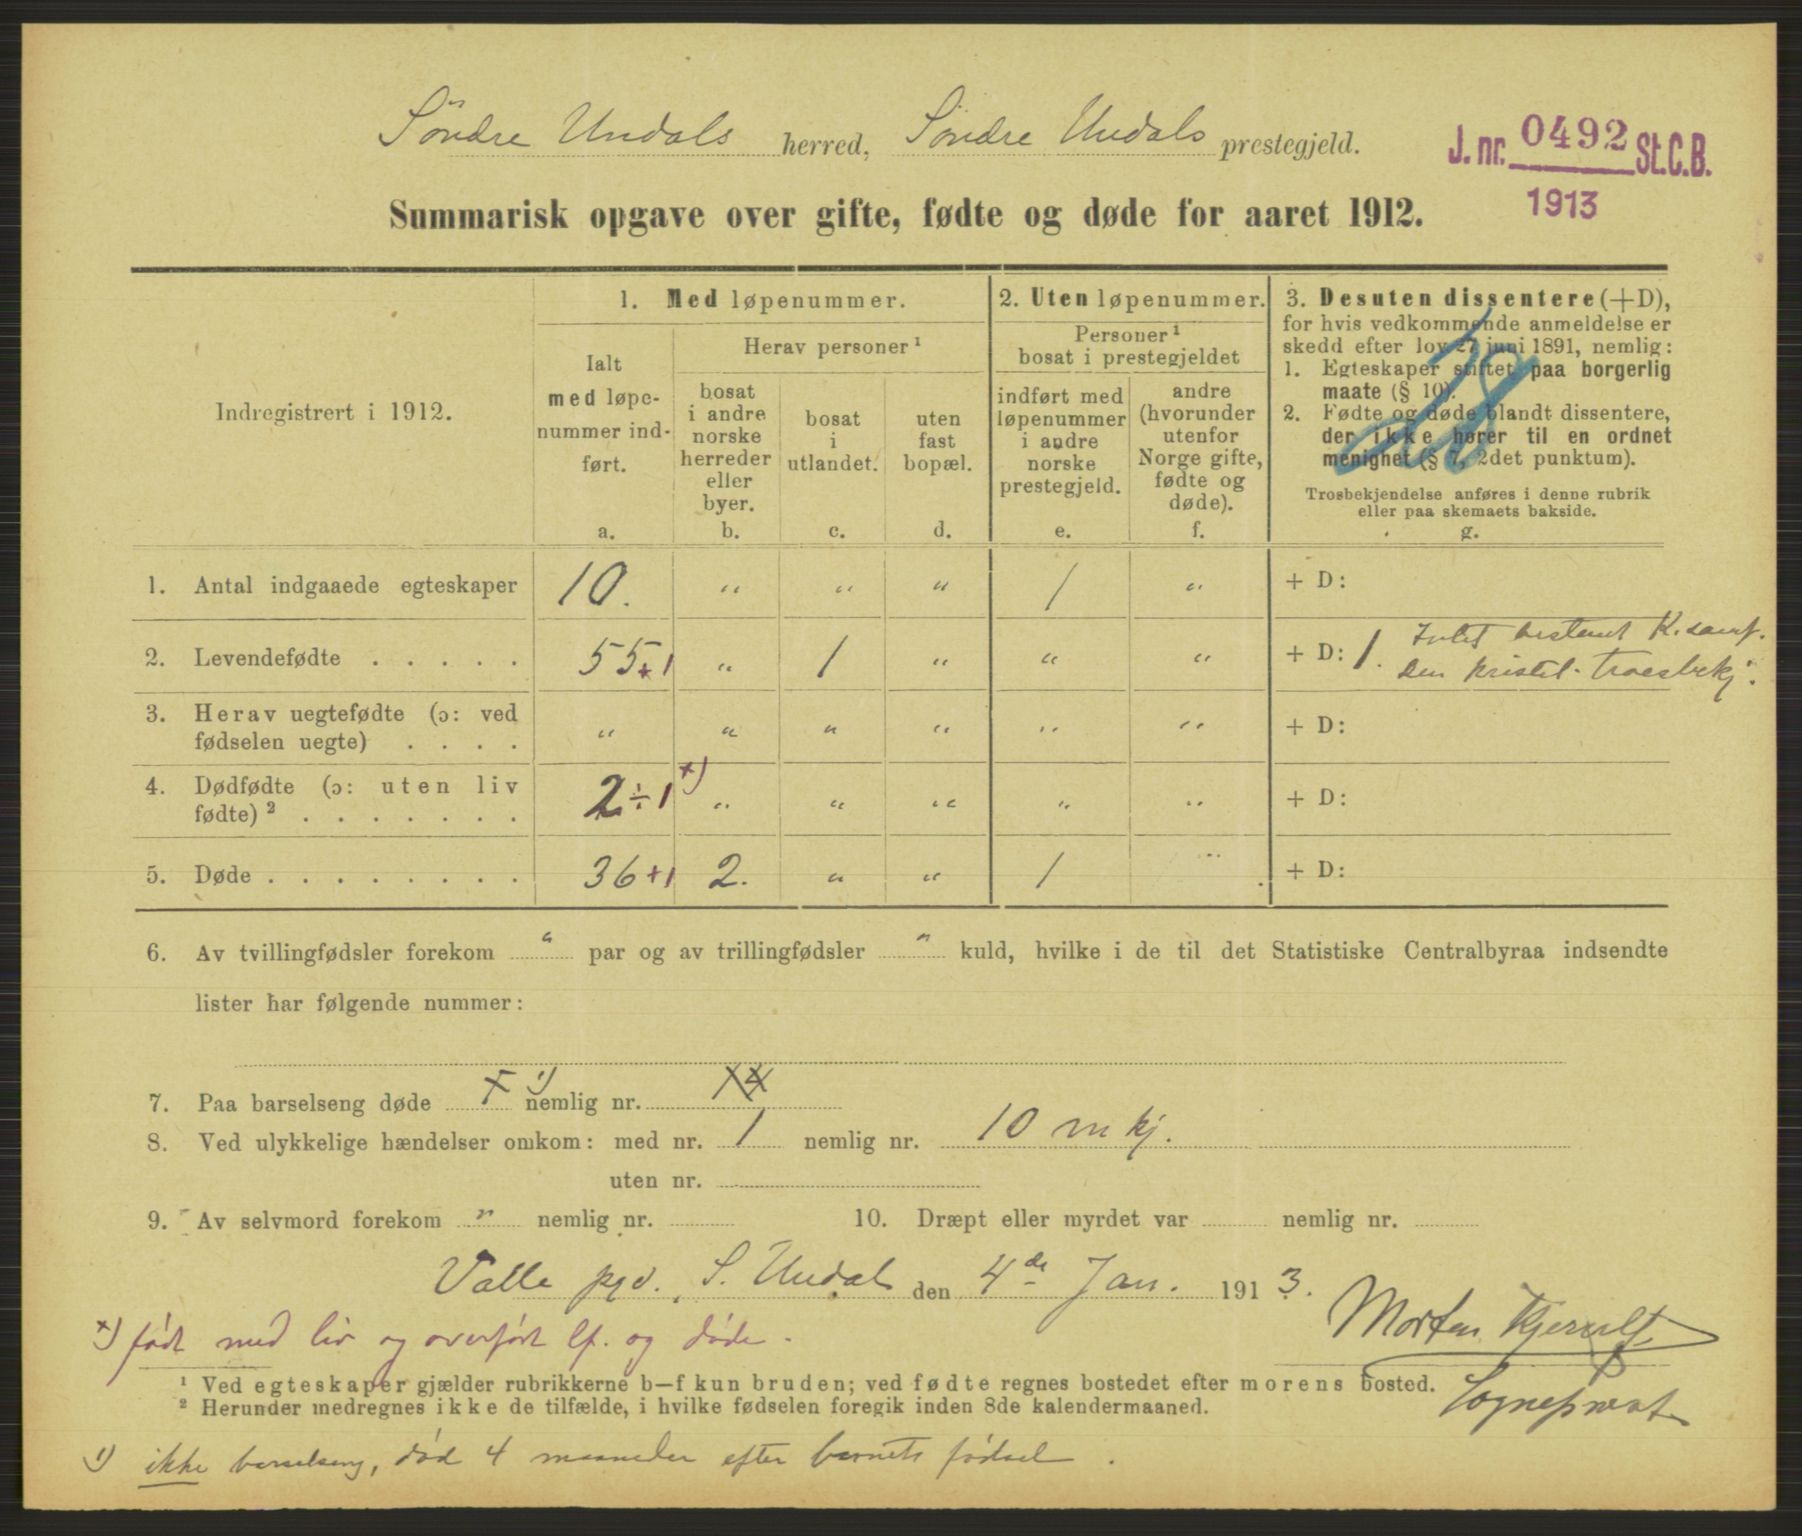 Søndre Undals herred, Søndre Undals prestegjeld.
J. nr. 0492 St.C.B.
1913
Summarisk opgave over gifte, fødte og døde for aaret 1912.
Indregistrert i 1912.
1. Med løpenummer.
Ialt
med løpe-
nummer ind-
ført.
a.
Herav personer ¹
bosat
i andre
norske
herreder
eller
byer.
b.
bosat
i
utlandet.
c.
uten
fast
bopæl.
d.
2. Uten løpenummer.
Personer ¹
bosat i prestegjeldet
indført med
løpenummer
i andre
norske
prestegjeld.
e.
andre
(hvorunder
utenfor
Norge gifte,
fødte og
døde).
f.
3. Desuten dissentere (+D),
for hvis vedkommende anmeldelse er
skedd efter lov 27 juni 1891, nemlig:
1. Egteskaper stiftet paa borgerlig
maate (§ 10).
2. Fødte og døde blandt dissentere,
der ikke hører til en ordnet
menighet (§ 7, 2det punktum).
Trosbekjendelse anføres i denne rubrik
eller paa skemaets bakside.
g.
28
1. Antal indgaaede egteskaper 10. " " " 1 " + D:
2. Levendefødte . . . . . 55+1 " 1 " " " + D: 1. Intet bestemt K.samf.
den kristel. troesbekj.
3. Herav uegtefødte (ɔ: ved
fødselen uegte) . . . . " " " " " " + D:
4. Dødfødte (ɔ: uten liv
fødte) ² . . . . . . . 2÷1 ×) " " " " " + D:
5. Døde . . . . . . . . 36+1 2. " " 1 " + D:
6. Av tvillingfødsler forekom " par og av trillingfødsler " kuld, hvilke i de til det Statistiske Centralbyraa indsendte
lister har følgende nummer:
7. Paa barselseng døde 1 ¹) nemlig nr. 14
8. Ved ulykkelige hændelser omkom: med nr. 1 nemlig nr. 10 m kj.
uten nr.
9. Av selvmord forekom " nemlig nr. 10. Dræpt eller myrdet var nemlig nr.
Valle pgd., S. Undal den 4de Jan. 1913.
Morten Kjerulf
Sogneprest
×) født med liv og overført lf. og døde.
¹ Ved egteskaper gjælder rubrikkerne b—f kun bruden; ved fødte regnes bostedet efter morens bosted.
² Herunder medregnes ikke de tilfælde, i hvilke fødselen foregik inden 8de kalendermaaned.
¹) ikke barselseng, død 4 maaneder efter barnets fødsel.